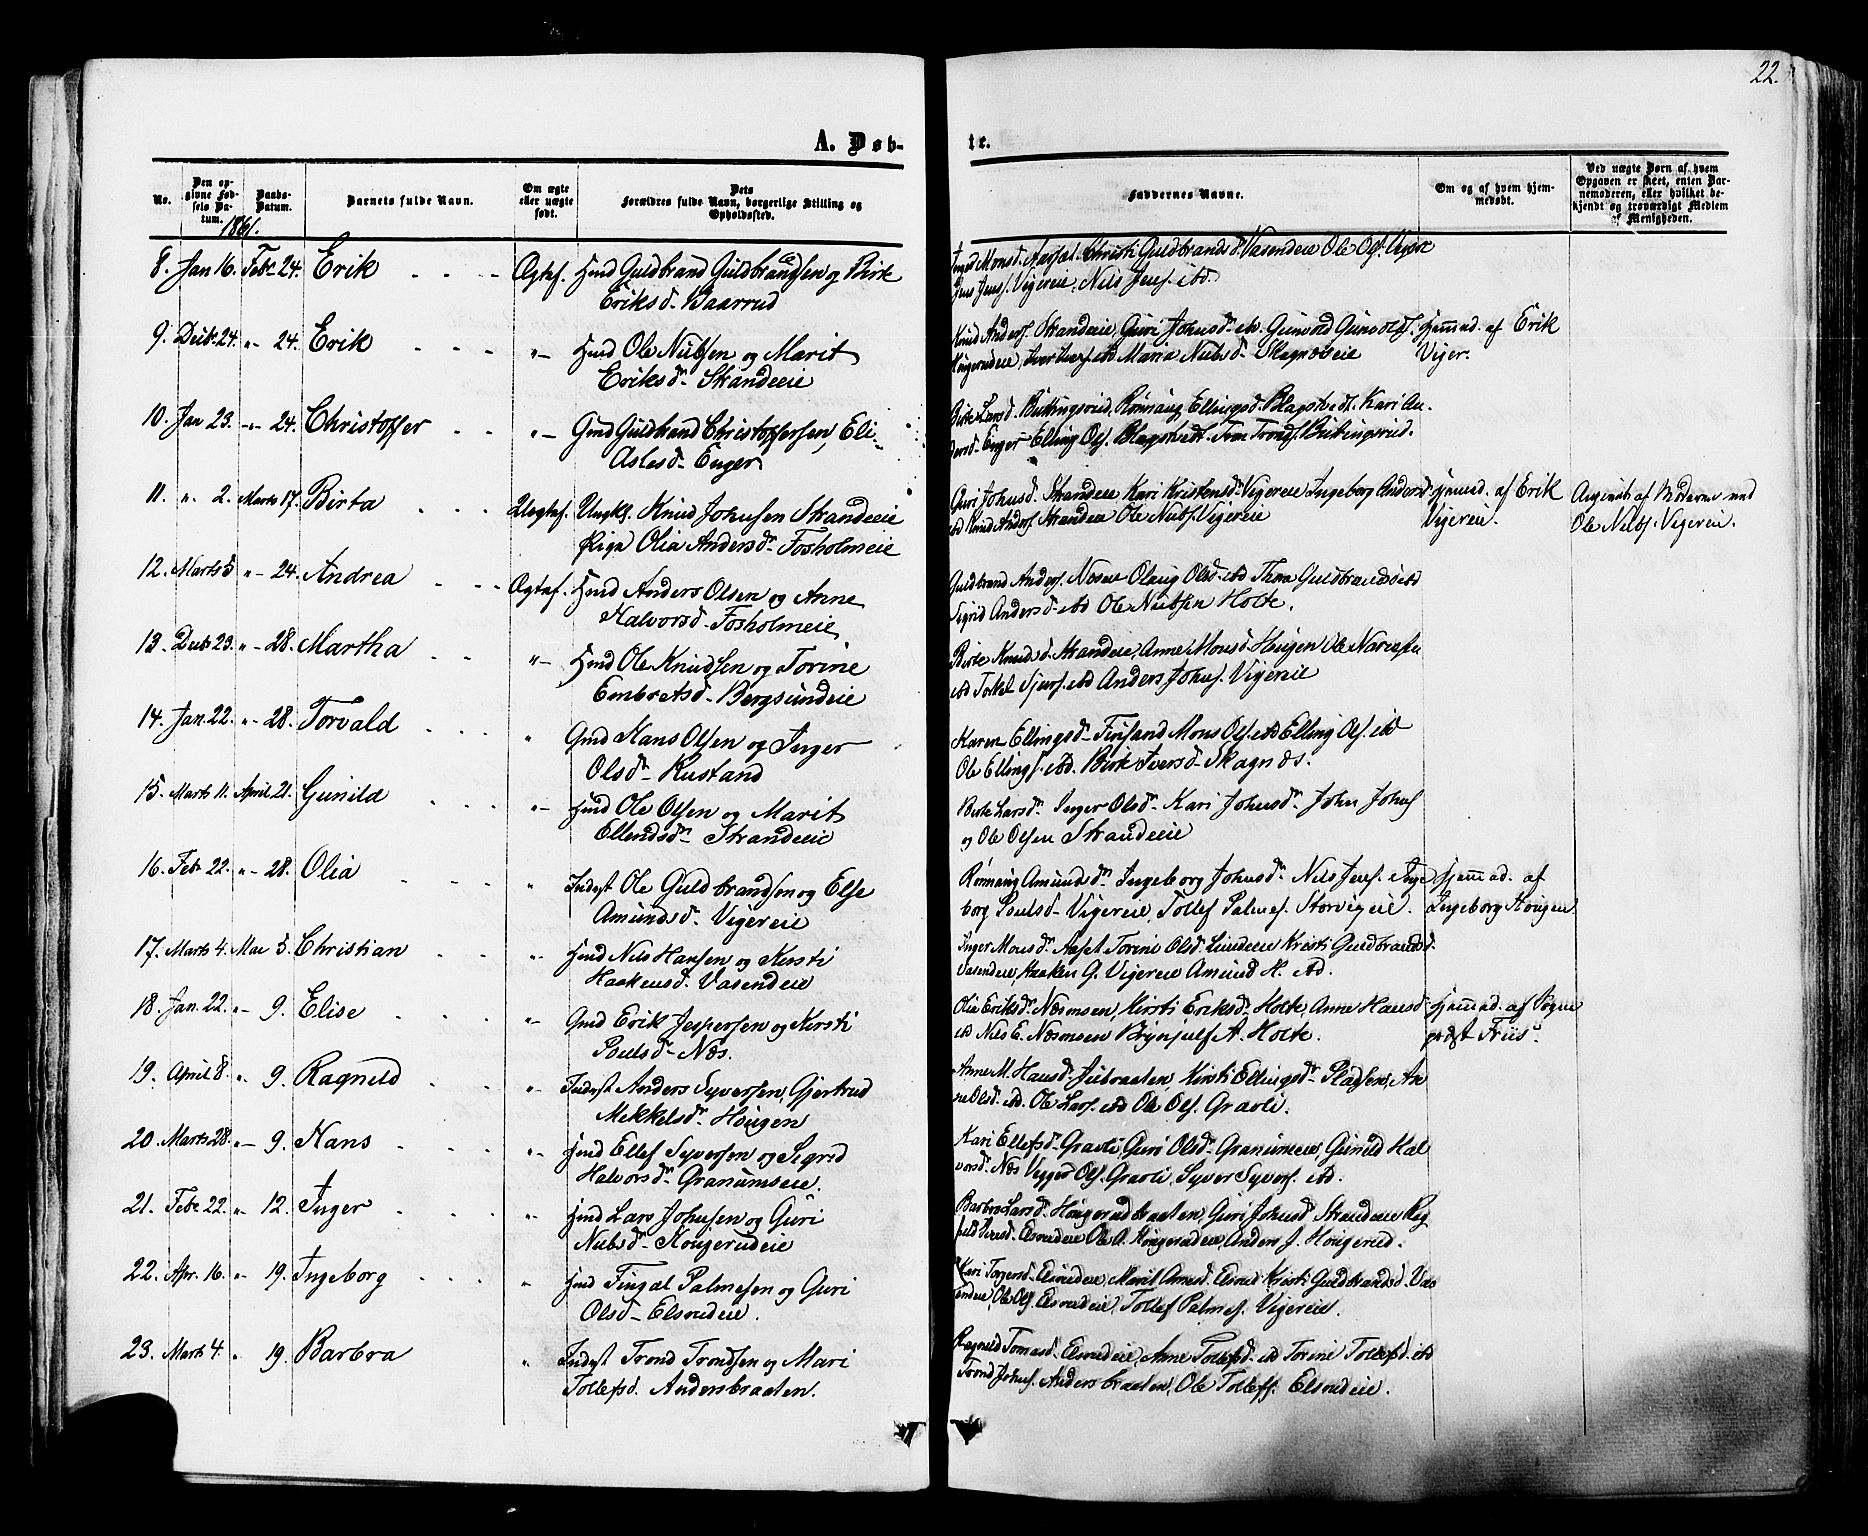 22.
A. Døb-
te.
No.
Den op-
givne Fød-
sels Da-
tum.
1861.
Daabs-
Datum.
Barnets fulde Navn.
Om ægte
eller uægte
født.
Dets
Forældres fulde Navn, borgerlige Stilling og
Opholdssted.
Faddernes Navne.
Om og af hvem hjem-
medøbt.
Ved uægte Børn af hvem
Opgaven er skeet, enten Bar-
nemoderen, eller hvilket be-
kjendt og troværdigt Medlem
af Menigheden.
8. Jan 16. Febr 24. Erik Ægtef. Hmd Guldbrand Guldbrandsen og Birte
Eriksd. Baarrud
Monsd. Aarsæt Christi Guldbrandsd. Vasendeie Ole Ols.
Jens Jens. Vigereie, Nils Jens. ibd.
9. Decbr. 24. "- 24. Erik "- Hmd Ole Nielsen og Marit
Eriksd. Strandeeie
Knud Anders. Strandeeie, Guri Johnsd. ibd. Gunvold Gunvolds.
Hougerudeie, Iver Ivers. ibd Maria Nielsd. Skagnæseie
Hjemmed. af Erik
Viger.
10. Jan 23. "- 24. Christoffer "- Gmd Guldbrand Christoffersen, Eli
Aslesd. Enger
Birte Larsd. Buttingsrud, Rønnaug Ellingsd. Blagstvedt. Kari An-
dersd. Enger Elling Ols. Blagstvedt. Tron Tronds. Buttingsrud.
11. " 2. Marts 17. Birta Uægtef. Ungk. Knud Johnsen Strandeeie
Pige Olia Andersd. Fosholmeie
Guri Johnsd. Strandeeie Kari Kristensd. Vigereie Ingeborg Andersd.
ibd Knud Anders. Strandeeie Ole Niels. Vigereie
Hjemmed. af Erik
Vigereie.
Angivet af Moderen med
Ole Niels. Vigereie.
12. Marts 5 "- 24. Andrea Ægtef. Hmd Anders Olsen og Anne
Halvorsd. Fosholmeie
Guldbrand Anders. Olaug Olsd. ibd Thora Guldbrandsd. ibd
Sigrid Andersd. ibd Ole Nielsen Holte.
13. Decbr 23. "- 28. Martha "- Hmd Ole Knudsen og Torine
Embretsd. Bergsundeie
Birte Knudsd. Strandeeie, Anne Monsd. Hougen Ole
ibd Torkel Sjurs. ibd Anders Johns. Vigereie
14. Jan. 22. "- 28. Torvald " Gmd Hans Olsen og Inger
Olsd. Rustand
Karen Ellingsd. Finsand Mons Ols. ibd Elling Ols. ibd
Ole Ellings. ibd. Birte Iversd. Skagnæs.
15. Marts 11. April 21. Gunild "- Hmd Ole Olsen og Marit
Ellendsd. Strandeeie
Berte Larsd. Inger Olsd. Kari Johnsd. John Johns.
og Ole Olsen Strandeeie
16. Febr 22. "- 28. Olia " Inderst Ole Guldbrandsen og Else
Amundsd. Vigereie
Rønnaug Amundsd. Ingeborg Johnsd. Nils Jens. Inge-
borg Poulsd. Vigereie, Tollef Palmes. Storvigeie.
Hjemmed. af
Ingeborg Hougen.
17. Marts 4. Mai 5. Christian "- Hmd Nils Hansen og Kersti
Haakensd. Vasendeie
Inger Monsd. Aaset Torine Olsd. Lindeeie Kristi Guldbrandsd.
Vasendeie, Haaken G. Vigereie Amund H. ibd.
18. Jan. 22. "- 9. Elise "- Gmd Erik Jespersen og Kersti
Poulsd. Næs.
Olia Eriksd. Næsmoen, Kirsti Eriksd. Holte, Anne Hansd.
ibd Nils E. Næsmoen Brynjulf A. Holte.
Hjemmed. af Sogne-
præst Friis.
19. April 8. "- 9. Ragnild " Inderst Anders Syversen, Gjertrud
Mekkelsd. Hougen
Anne M. Hansd. Juvbraaten, Kirsti Ellingsd. Pladsen, An-
ne Olsd. ibd. Ole Lars. ibd Ole Ols. Gravli.
20. Marts 28. "- 9. Hans "- Hmd Ellef Syversen og Sigrid
Halvorsd. Granumseie.
Kari Ellefsd. Gravli, Guri Olsd. Granumeie, Gunild Hal-
vorsd. Næs Ols. Gravli, Syver Syvers. ibd.
21. Febr 22. "- 12. Inger "- Hmd Lars Johnsen og Guri
Nielsd. Hougerudeie
Barbro Larsd. Hougerudbraaten, Guri Johnsd. Strandeeie Rag-
nild Iversd. Elsrudeie Ole A. Hougerudeie, Anders J. Hougerud.
22. Apr. 16. " 19. Ingeborg " Hmd Fingal Palmesen og Guri
Olsd. Elsrudeie.
Kari Torgersd. Elsrudeie, Marit Arnesd. Elsrud Kirsti Guldbrandsd. Vas-
endeie, Ole Ols. Elsrudeie, Tollef Palmes. Vigereie.
23. Marts 4. " 19. Barbra " Inderst Trond Trondsen og Mari
Tollefsd. Andersbraaten.
Ragnild Tomasd. Elsrudeie, Anne Tollefsd. ibd Torine Tollefsd. ibd
Trond Johns. Andersbraaten, Ole Tollefs. Elsrudeie.